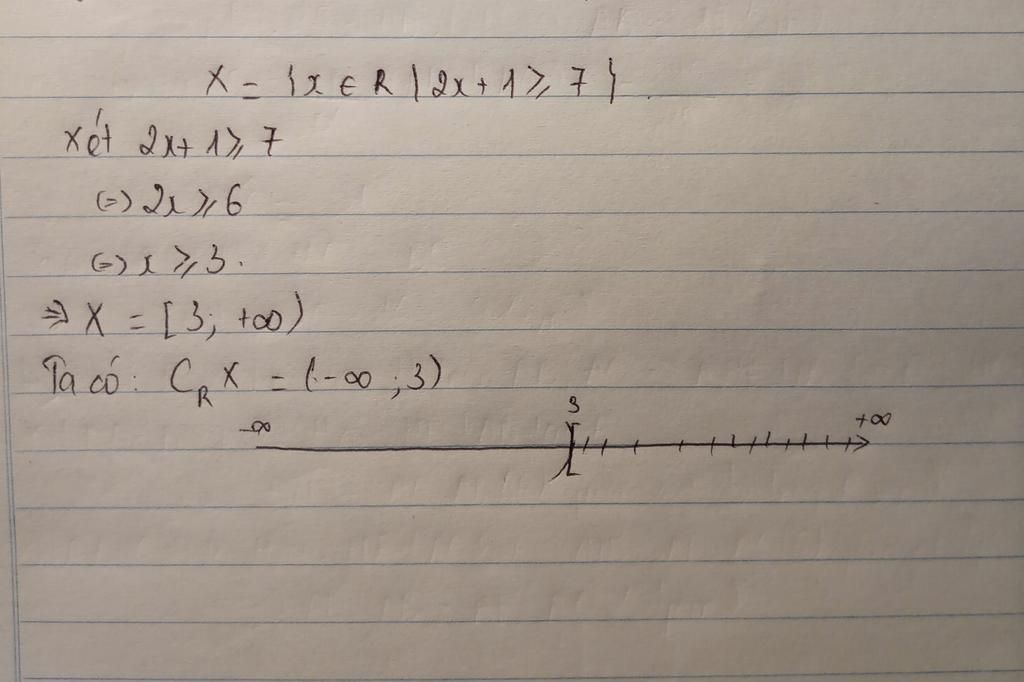 X = {x ∈ R | 2x + 1 ⩾ 7}.
Xét 2x + 1 ⩾ 7
(=) 2x ⩾ 6
(=) x ⩾ 3.
⇒ X = [3; +∞)
Ta có: C_R X = (-∞; 3)
-∞ 3 +∞